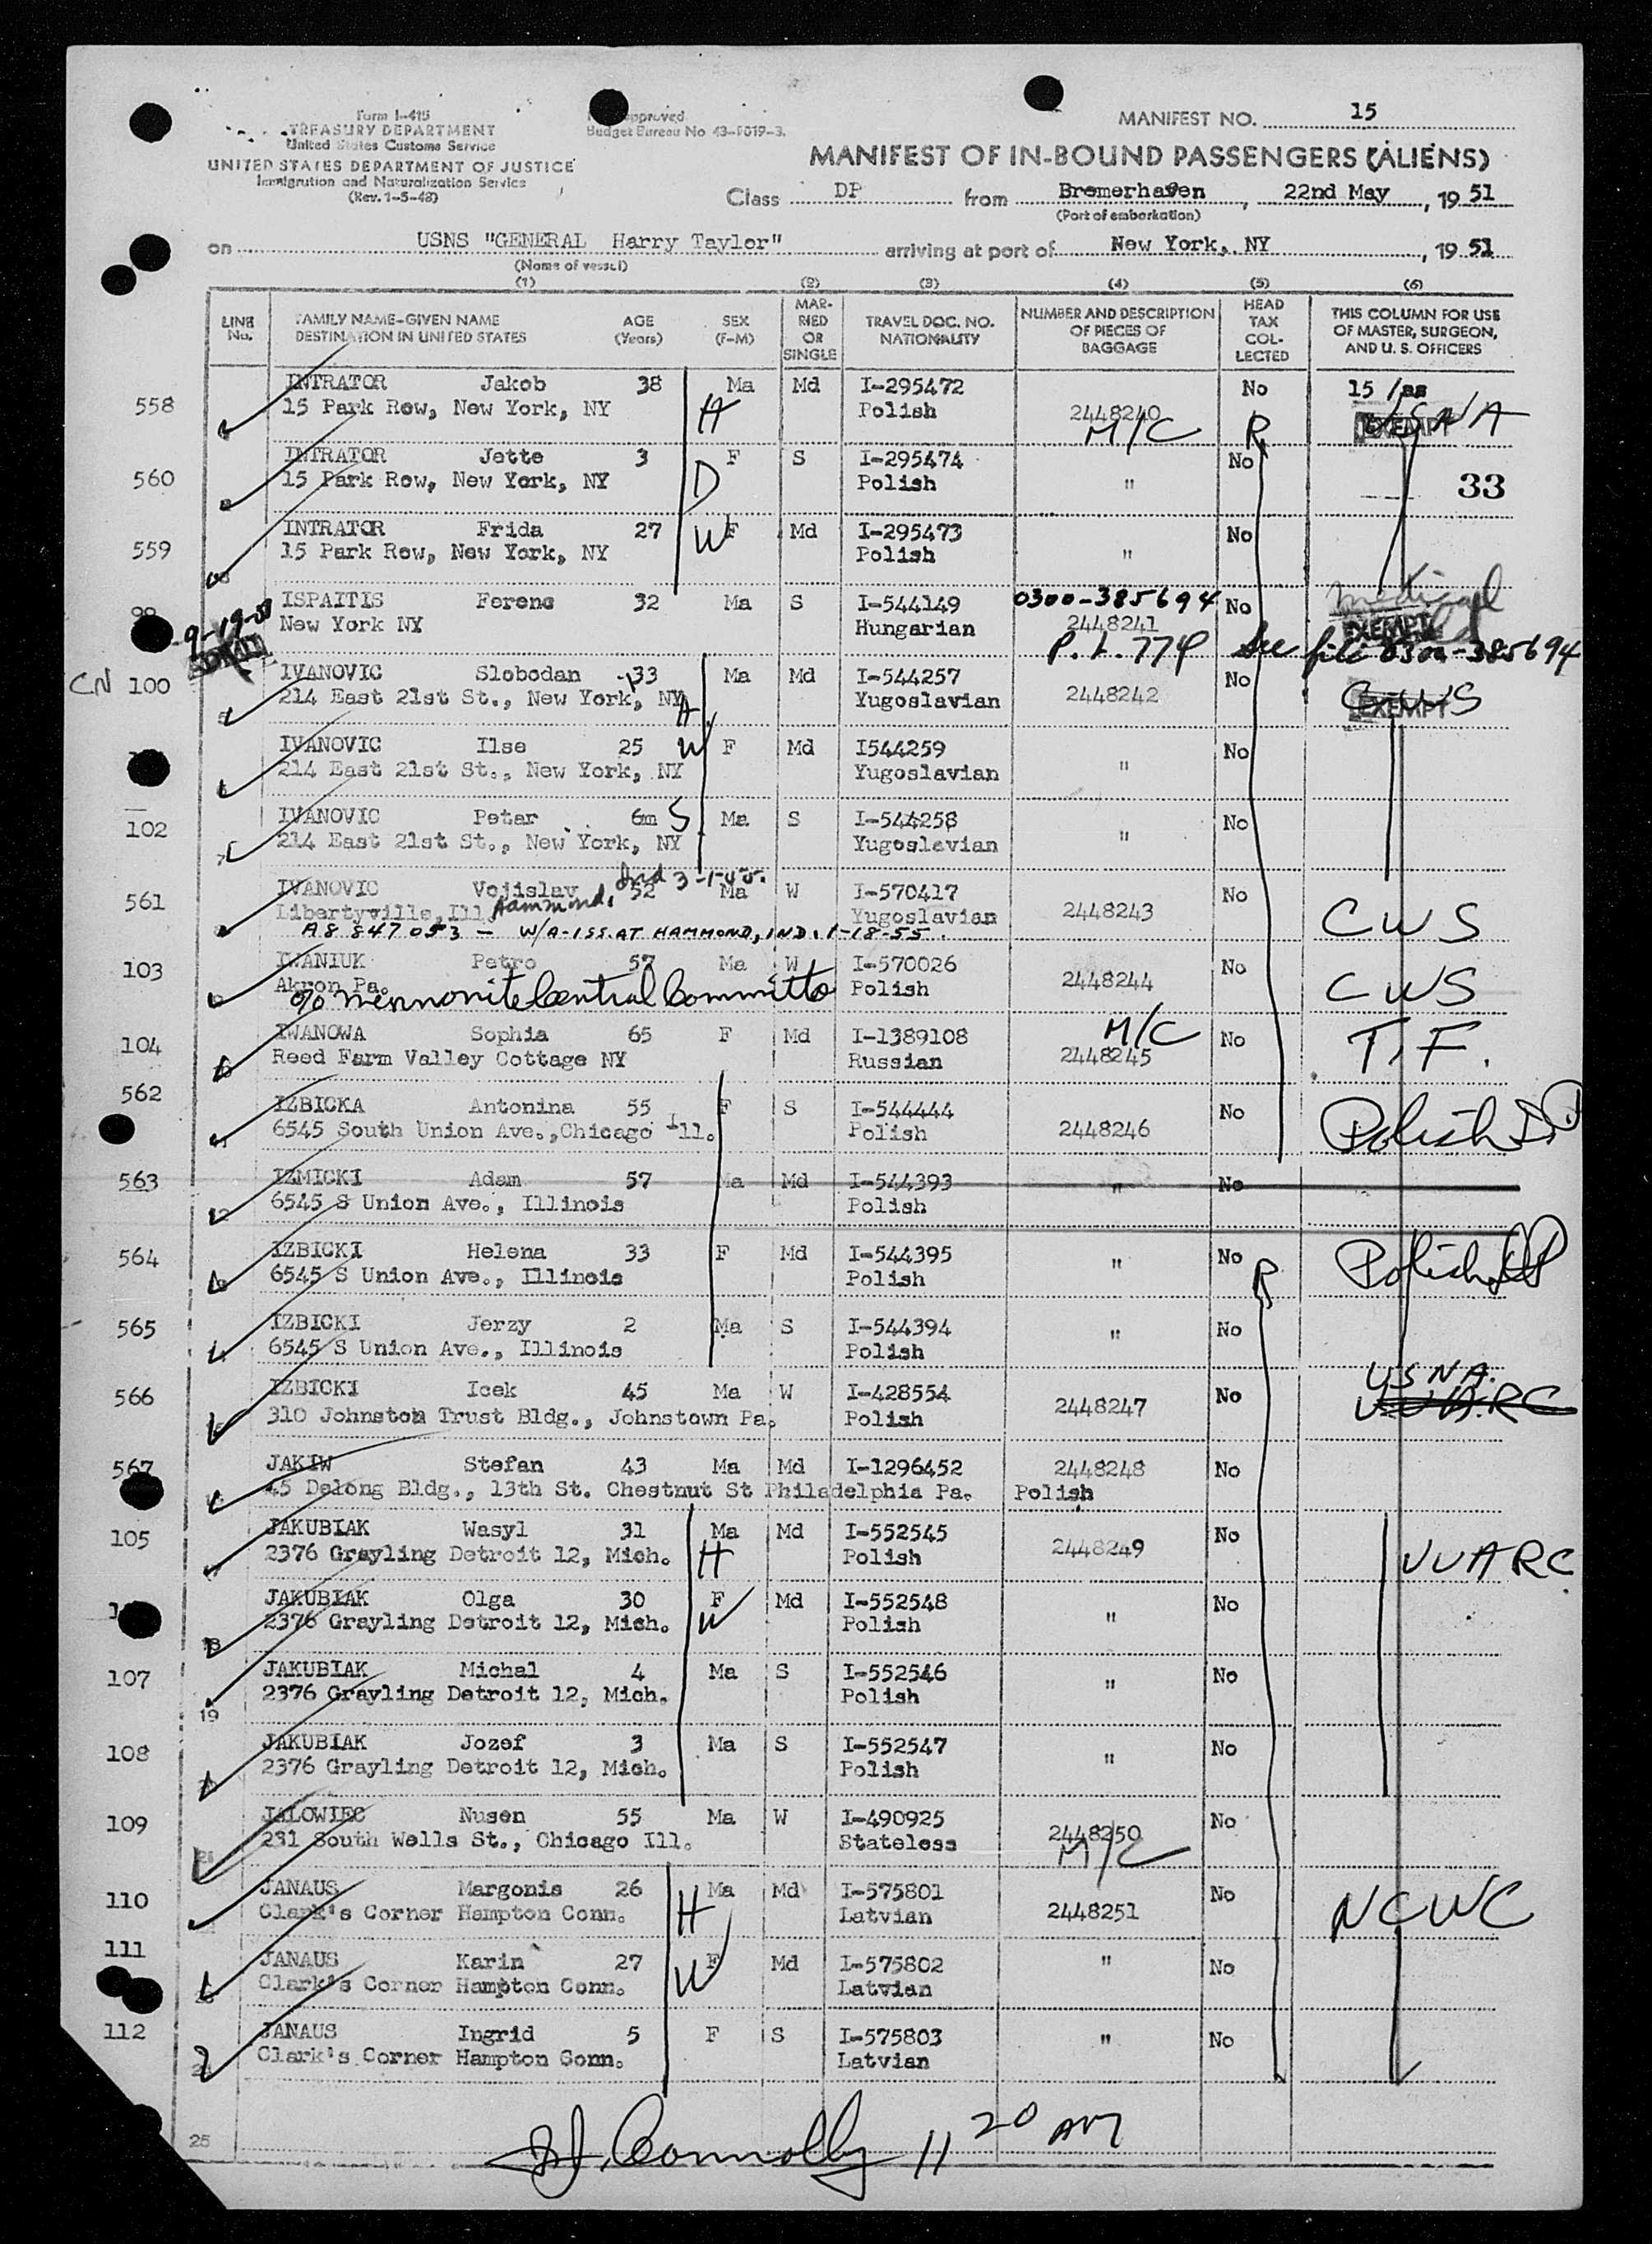 Form I-415
TREASURY DEPARTMENT
United States Customs Service
UNITED STATES DEPARTMENT OF JUSTICE
Immigration and Naturalization Service
(Rev. 1-5-48)
approved.
Budget Bureau No 43-R019-3.
MANIFEST NO. 15
MANIFEST OF IN-BOUND PASSENGERS (ALIENS)
Class DP from Bremerhaven, 22nd May, 19 51
(Port of embarkation)
on USNS "GENERAL Harry Taylor" arriving at port of New York, NY, 19 51
(Name of vessel)
(1) (2) (3) (4) (5) (6)
LINE No. FAMILY NAME-GIVEN NAME DESTINATION IN UNITED STATES AGE (Years) SEX (F-M) MARRIED OR SINGLE TRAVEL DOC. NO. NATIONALITY NUMBER AND DESCRIPTION OF PIECES OF BAGGAGE HEAD TAX COLLECTED THIS COLUMN FOR USE OF MASTER, SURGEON, AND U. S. OFFICERS
558 INTRATOR Jakob 38 Ma Md I-295472 No 15
15 Park Row, New York, NY H Polish 2448240 M/C R EXEMPT USNA
560 INTRATOR Jette 3 F S I-295474 No
15 Park Row, New York, NY D Polish " 33
559 INTRATOR Frida 27 W F Md I-295473 No
15 Park Row, New York, NY Polish "
99 ISPAITIS Ferenc 32 Ma S I-544149 0300-385694 No medical
9-19-51 New York NY Hungarian 2448241 EXEMPT
P.L. 774 See file 0300-385694
CN 100 IVANOVIC Slobodan 33 Ma Md I-544257 No
214 East 21st St., New York, NY H. Yugoslavian 2448242 EXEMPT CWS
IVANOVIC Ilse 25 W F Md I544259 No
214 East 21st St., New York, NY Yugoslavian "
102 IVANOVIC Petar 6m S Ma S I-544258 No
214 East 21st St., New York, NY Yugoslavian "
Ind 3-1-55.
561 IVANOVIC Vojislav 52 Ma W I-570417 No
Libertyville, Ill. Hammond, Yugoslavian 2448243 CWS
A8 847 053 - W/A-ISS. AT HAMMOND, IND. 1-18-55.
103 IWANIUK Petro 57 Ma W I-570026 No
Akron Pa. Polish 2448244 CWS
% Mennonite Central Committe
104 IWANOWA Sophia 65 F Md I-1389108 M/C No
Reed Farm Valley Cottage NY Russian 2448245 T.F.
562 IZBICKA Antonina 55 F S I-544444 No
6545 South Union Ave.,Chicago Ill. Polish 2448246 Polish DP
563 IZMICKI Adam 57 Ma Md I-544393 " No
6545 S Union Ave., Illinois Polish
564 IZBICKI Helena 33 F Md I-544395 " No
6545 S Union Ave., Illinois Polish R Polish DP
565 IZBICKI Jerzy 2 Ma S I-544394 " No
6545 S Union Ave., Illinois Polish
566 IZBICKI Icek 45 Ma W I-428554 No USNA.
310 Johnston Trust Bldg., Johnstown Pa. Polish 2448247 UUARC
567 JAKIW Stefan 43 Ma Md I-1296452 2448248 No
45 Delong Bldg., 13th St. Chestnut St Philadelphia Pa. Polish
105 JAKUBIAK Wasyl 31 Ma Md I-552545 No
2376 Grayling Detroit 12, Mich. H Polish 2448249 UUARC
JAKUBIAK Olga 30 F Md I-552548 No
18 2376 Grayling Detroit 12, Mich. W Polish "
107 JAKUBIAK Michal 4 Ma S I-552546 No
19 2376 Grayling Detroit 12, Mich. Polish "
108 JAKUBIAK Jozef 3 Ma S I-552547 No
2376 Grayling Detroit 12, Mich. Polish "
109 JALOWIEC Nusen 55 Ma W I-490925 No
21 231 South Wells St., Chicago Ill. Stateless 2448250 M/C
110 JANAUS Margonis 26 H Ma Md I-575801 No
Clark's Corner Hampton Conn. Latvian 2448251 NCWC
111 JANAUS Karin 27 W F Md I-575802 " No
Clark's Corner Hampton Conn. Latvian
112 JANAUS Ingrid 5 F S I-575803 " No
Clark's Corner Hampton Conn. Latvian
25 Connolly 11 20 AM